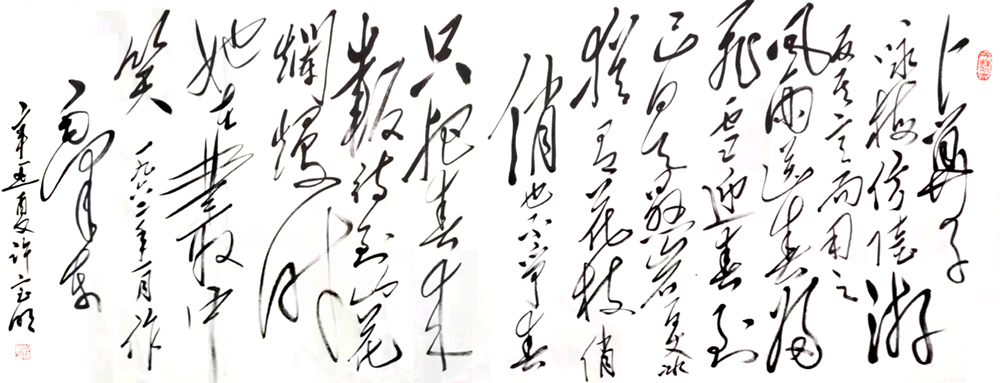 卜算子
咏梅仿陆游
反其意而用之
风雨送春归
飞雪迎春到
已是悬岩百丈冰
犹有花枝俏
俏也不争春
只把春来
報待到山花
爛熳时
她在叢中
笑 一九六二年一月作
毛泽东
辛丑夏许